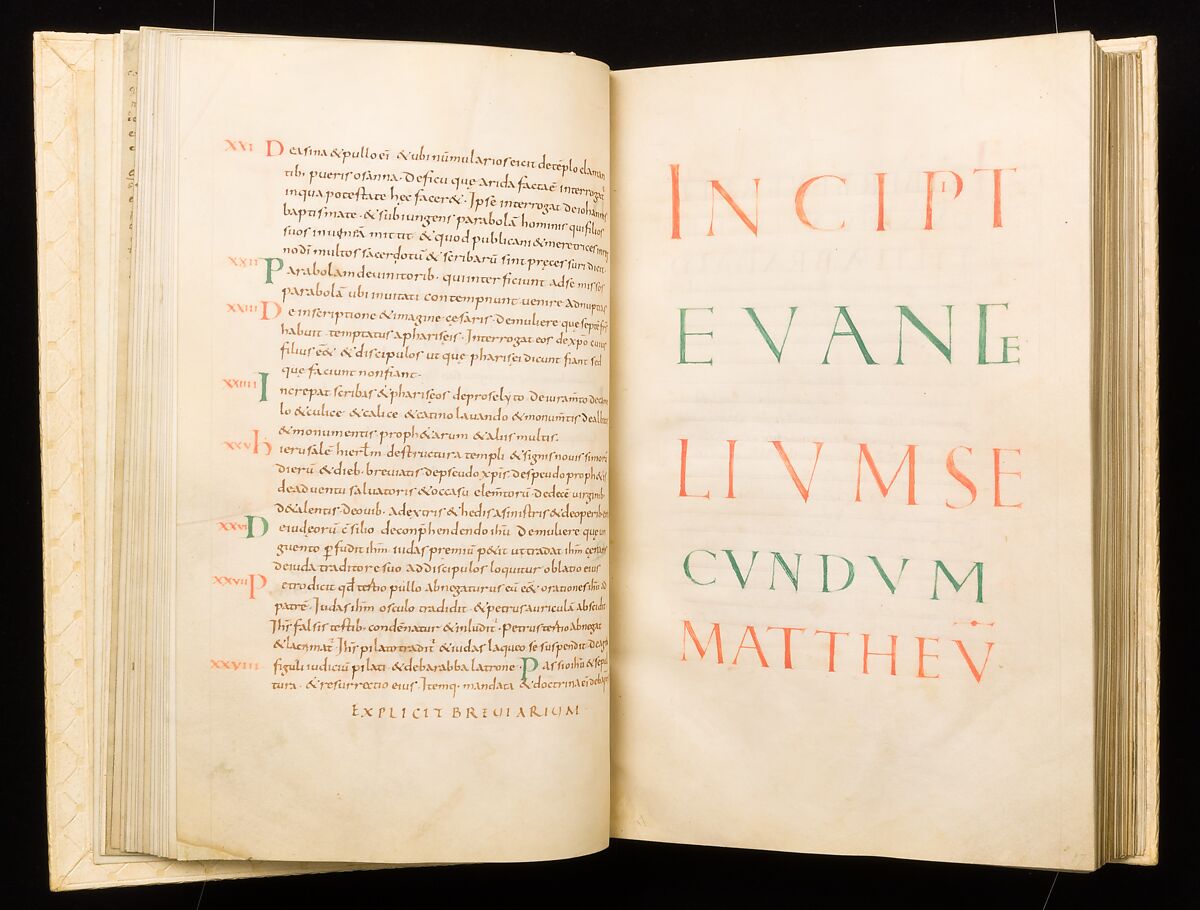 XXI De asina & pullo ei & ubi nūmularios eicit de tēplo claman
tib. pueris osanna. De ficu que arida facta ē interrogat
in qua potestate hęc facer&. Ipse interrogat de iohannis
baptismate. & subiungens parabolā hominis qui filios
suos in uineā mittit & quod publicani & meretrices
nodī multos sacerdotū & scribarū sint
XXII Parabolam de uinitorib. qui interficiunt ad se missos
parabolā ubi inuitati contempnunt uenire ad nuptias
XXIII De inscriptione & imagine cęsaris. De muliere que septē
habuit temptatus a phariseis. Interrogat eos de xp̄o cuius
filius eē& & discipulos ut que pharisei dicunt fiant sed
quę faciunt non fiant.
XXIIII Increpat scribas & phariseos de proselyto de iuram̄to de
lo & culice & calice & catino lauando & monum̄tis dealbat
& monumentis proph&arum & aliis multis.
XXV Hierusalē hierl̄m destructura templi & signis nouissimorū
dierū & dieb. breuiatis de pseudo xp̄is de pseudo proph&is
de aduentu saluatoris & occasu elem̄torū de decē uirginib.
de talentis. De ouib. a dextris & hedis a sinistris & de operib.
XXVI De iudeorū c̄silio de conp̄hendendo ih̄u De muliere que un
guento p̄fudit ih̄m iudas premiū p&it ut tradat ih̄m
de iuda traditore suo ad discipulos loquitur oblatio eius
XXVII Petro dicit qd̄ tertio pullo abnegaturus eū eē& orationes ih̄u ad
patrē. Iudas ih̄m osculo tradidit. & petrus auriculā abscidit
Ih̄s falsis testib. condēnatur & inludit̄. Petrus tertio abnegat
& lacrimat̄. Ih̄s pilato tradit̄ & iudas laqueo se suspendit. De agro
XXVIII figuli iudiciū pilati. & de barabba latrone. Passio ih̄u & sepul
tura. & resurrectio eius. Itemq. mandata & doctrina ei de
EXPLICIT BREUIARIUM
INCIPIT
EVANGE
LIVM SE
CVNDVM
MATTHEV̄